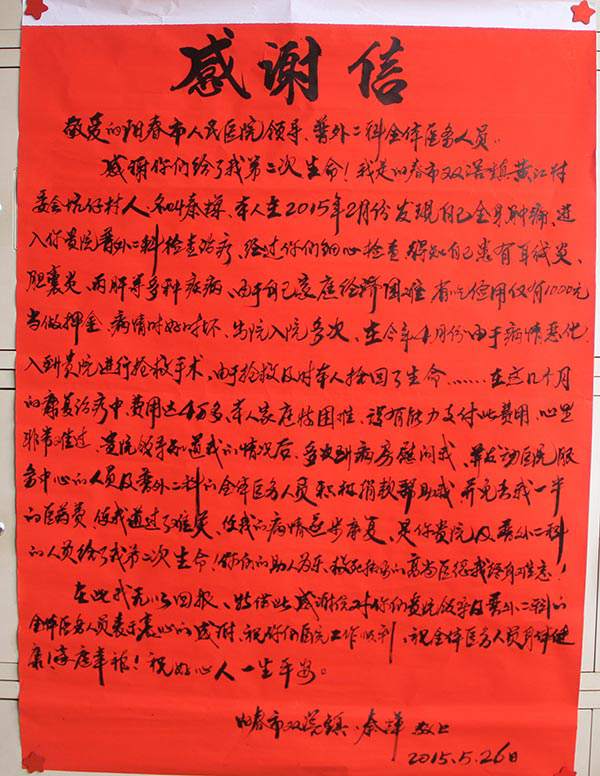 感谢信
敬爱的阳春市人民医院领导、普外二科全体医务人员：
感谢你们给了我第二次生命！我是阳春市双滘镇黄江村
委会坑仔村人，名叫秦，本人在2015年2月份发现自己全身肿痛，进
入你贵院普外二科检查治疗，经过你们细心检查得知自己患有耳线炎、
胆囊炎、丙肝等多种疾病，由于自己家庭经济困难，省吃俭用仅有1000元
当做押金，病情时好时坏，出院入院多次，在今年4月份由于病情恶化，
入到贵院进行抢救手术，由于抢救及时本人捡回了生命………在这几个月
的康复治疗中，费用达4万多，本人家庭特困难，没有能力支付此费用，心里
非常难过，贵院领导知道我的情况后，多次到病房慰问我，并发动医院服
务中心的人员及普外二科的全体医务人员积极捐款帮助我，并免去我一半
的医药费，使我通过了难关，使我的病情逐步康复，是你贵院及普外二科
的人员给了我第二次生命！你们的助人为乐、救死扶伤的高尚医德我终身难忘！
在此我无以回报，特借此感谢信对你们贵院领导及普外二科的
全体医务人员表示衷心的感谢，祝你们医院工作顺利，祝全体医务人员身体健
康！家庭幸福！祝好心人一生平安。
阳春市双滘镇 秦 敬上
2015.5.26日